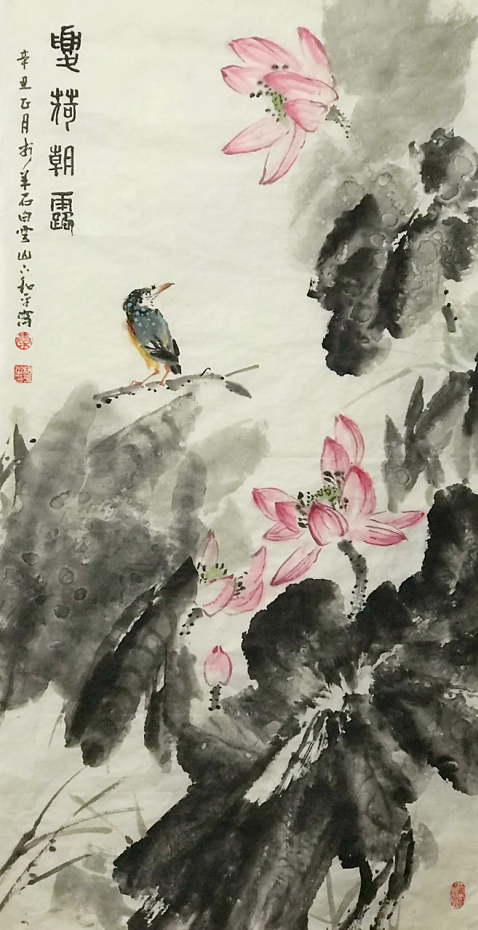 夏荷朝露
辛丑正月於羊石白雲山下和平寫